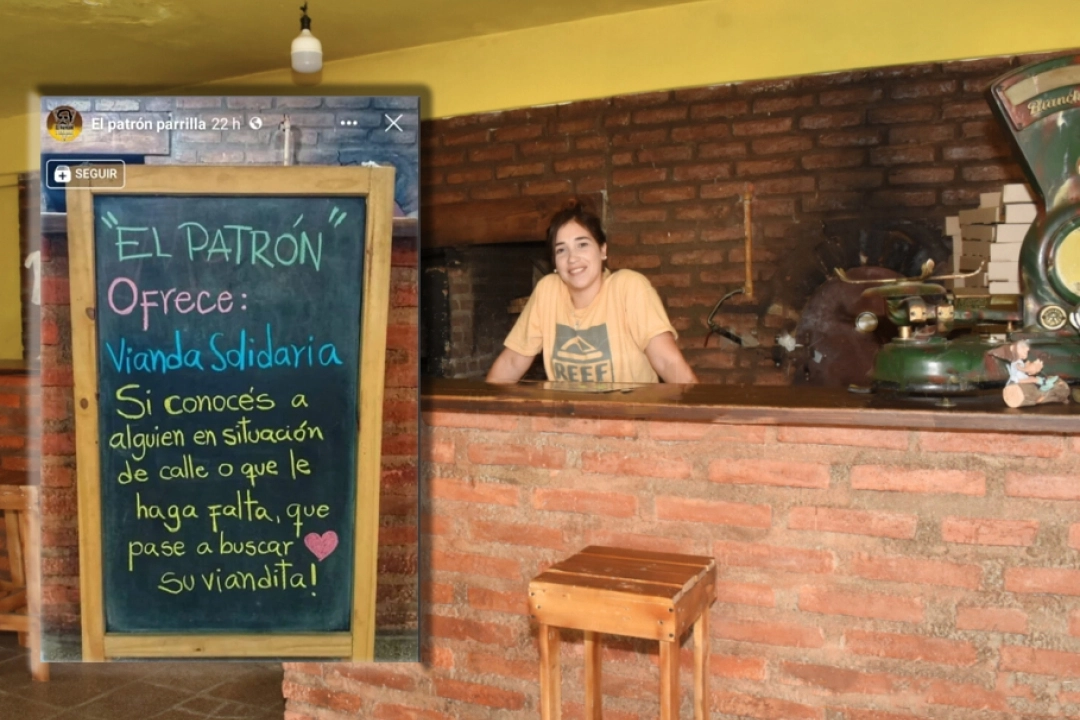 El patrón parrilla 22 h
SEGUIR
"EL PATRÓN"
Ofrece:
Vianda Solidaria
Si conocés a
alguien en situación
de calle o que le
haga falta, que
pase a buscar
su viandita!
REEF
Bianchi